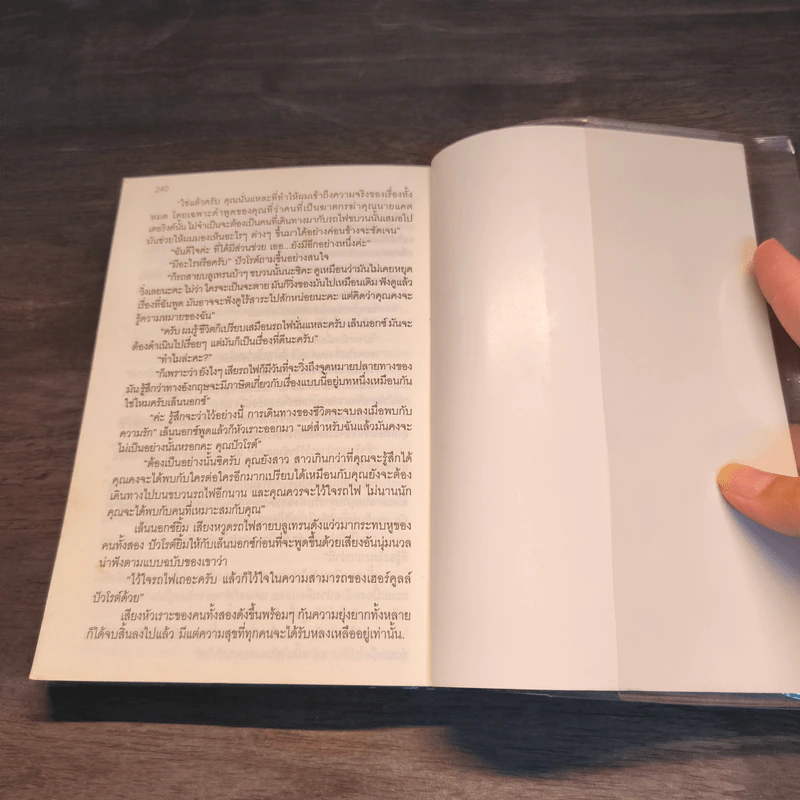 240
"ใช่แล้วครับ คุณนั่นแหละที่ทำให้ผมเข้าถึงความจริงของเรื่องทั้ง
หมด โดยเฉพาะคำพูดของคุณที่ว่าคนที่เป็นฆาตกรฆ่าคุณนายแคต
เตอริงค์นั้น ไม่จำเป็นจะต้องเป็นคนที่เดินทางมากับรถไฟขบวนนั้นเสมอไป
มันช่วยให้ผมมองเห็นอะไรๆ ต่างๆ ขึ้นมาได้อย่างค่อนข้างจะชัดเจน"
"ฉันดีใจค่ะ ที่ได้มีส่วนช่วย เออ...ยังมีอีกอย่างหนึ่งค่ะ"
"มีอะไรหรือครับ" ปัวโรต์ถามขึ้นอย่างสนใจ
"ก็รถสายบลูเทรนบ้าๆ ขบวนนั้นนะซิคะ ดูเหมือนว่ามันไม่เคยหยุด
วิ่งเลยนะคะ ไม่ว่า ใครจะเป็นจะตาย มันก็วิ่งของมันไปเหมือนเดิม ฟังดูแล้ว
เรื่องที่ฉันพูด มันอาจจะฟังดูไร้สาระไปสักหน่อยนะคะ แต่คิดว่าคุณคงจะ
รู้ความหมายของฉัน"
"ครับ ผมรู้ ชีวิตก็เปรียบเสมือนรถไฟนั่นแหละครับ เล็นนอกซ์ มันจะ
ต้องดำเนินไปเรื่อยๆ แต่มันก็เป็นเรื่องที่ดีนะครับ"
"ทำไมล่ะคะ?"
"ก็เพราะว่า ยังไงๆ เสียรถไฟก็มีวันที่จะวิ่งถึงจุดหมายปลายทางของ
มัน รู้สึกว่าทางอังกฤษจะมีภาษิตเกี่ยวกับเรื่องแบบนี้อยู่บทหนึ่งเหมือนกัน
ใช่ไหมครับเล็นนอกซ์"
"ค่ะ รู้สึกจะว่าไว้อย่างนี้ การเดินทางของชีวิตจะจบลงเมื่อพบกับ
ความรัก" เล็นนอกซ์พูดแล้วก็หัวเราะออกมา "แต่สำหรับฉันแล้วมันคงจะ
ไม่เป็นอย่างนั้นหรอกคะ คุณปัวโรต์"
"ต้องเป็นอย่างนั้นซิครับ คุณยังสาว สาวเกินกว่าที่คุณจะรู้สึกได้
คุณคงจะได้พบกับใครต่อใครอีกมากเปรียบได้เหมือนกับคุณยังจะต้อง
เดินทางไปบนขบวนรถไฟอีกนาน และคุณควรจะไว้ใจรถไฟ ไม่นานนัก
คุณจะได้พบกับคนที่เหมาะสมกับคุณ"
เล็นนอกซ์ยิ้ม เสียงหวูดรถไฟสายบลูเทรนดังแว่วมากระทบหูของ
คนทั้งสอง ปัวโรต์ยิ้มให้กับเล็นนอกซ์ก่อนที่จะพูดขึ้นด้วยเสียงอันนุ่มนวล
น่าฟังตามแบบฉบับของเขาว่า
"ไว้ใจรถไฟเถอะครับ แล้วก็ไว้ใจในความสามารถของเฮอร์คูลล์
ปัวโรต์ด้วย"
เสียงหัวเราะของคนทั้งสองดังขึ้นพร้อมๆ กันความยุ่งยากทั้งหลาย
ก็ได้จบสิ้นลงไปแล้ว มีแต่ความสุขที่ทุกคนจะได้รับหลงเหลืออยู่เท่านั้น.